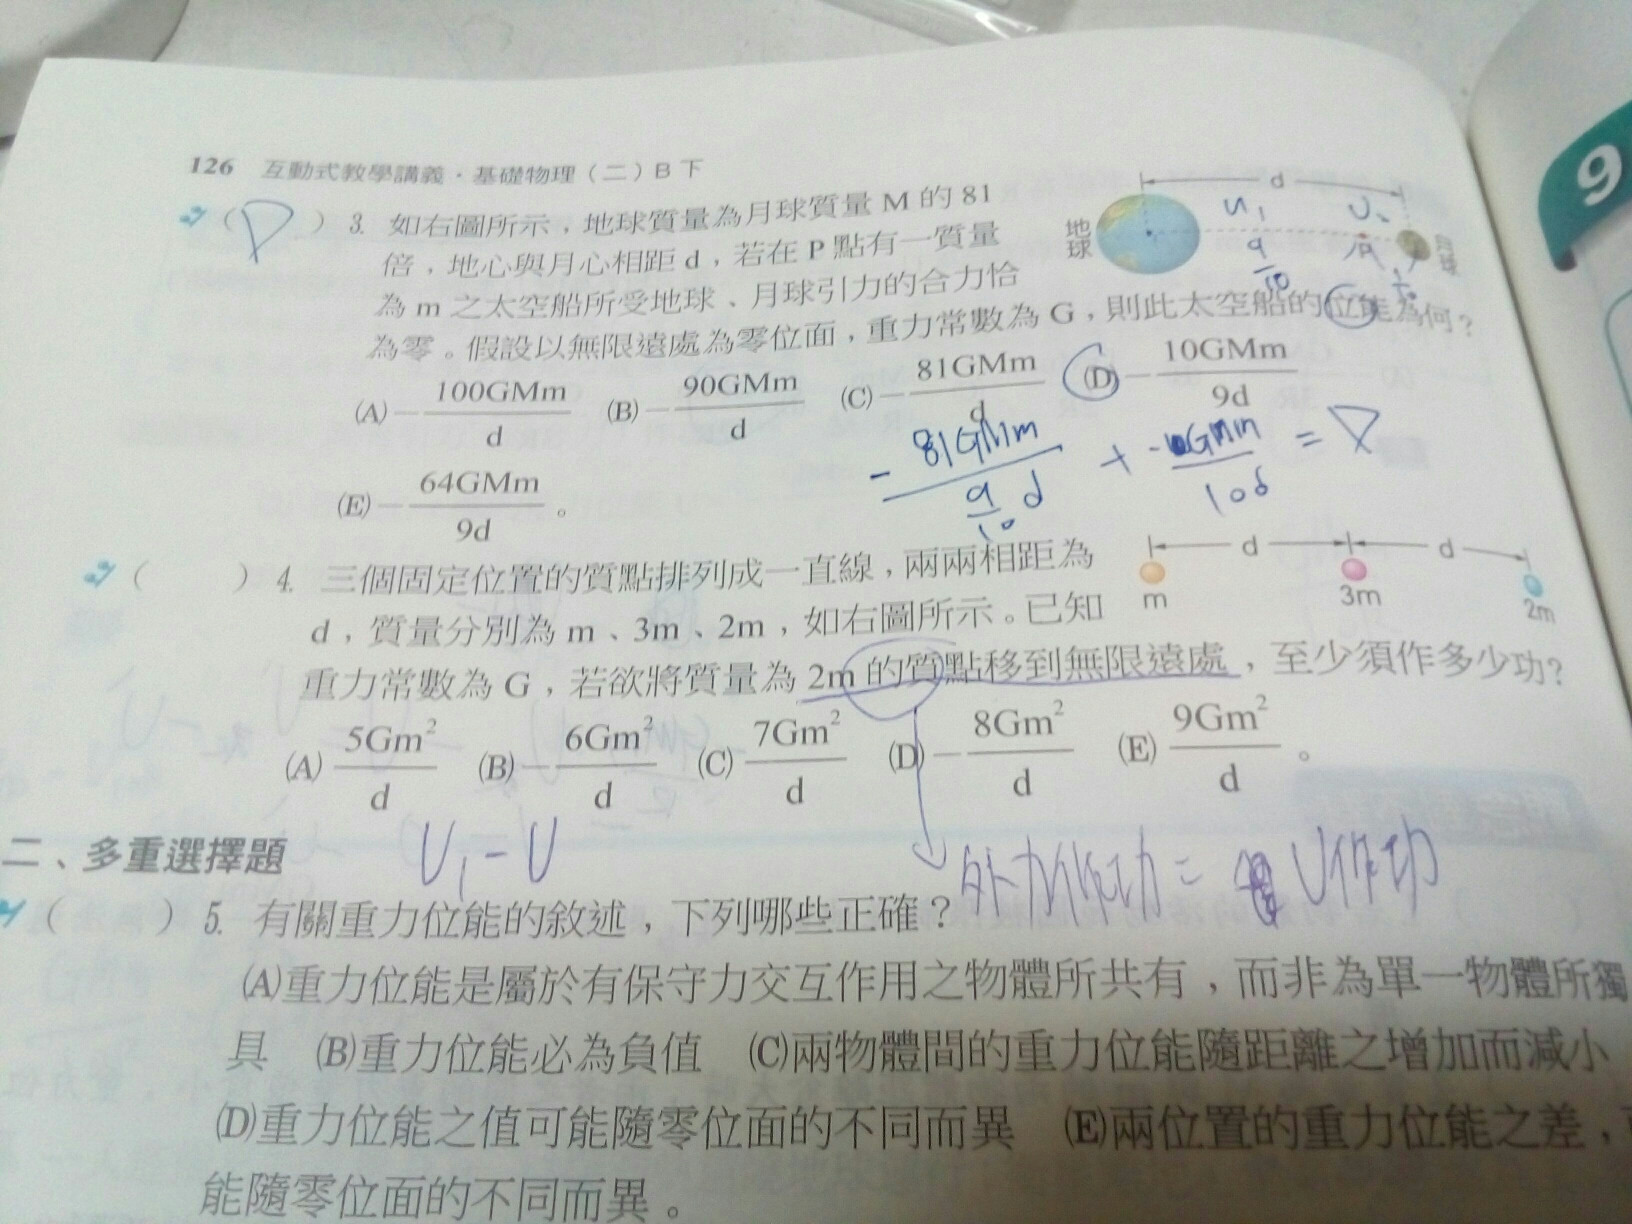 126 互動式教學講義・基礎物理(二)B 下
(D) 3. 如右圖所示,地球質量為月球質量 M 的 81
倍,地心與月心相距 d,若在 P 點有一質量
為 m 之太空船所受地球、月球引力的合力恰
為零。假設以無限遠處為零位面,重力常數為 G,則此太空船的位能為何?
d
地球
U₁
9/10
P
1/10
月球
(A) -100GMm/d (B) -90GMm/d (C) -81GMm/d (D) -10GMm/9d
(E) -64GMm/9d。
-81GMm / (9/10 d) + = D
( ) 4. 三個固定位置的質點排列成一直線,兩兩相距為
d,質量分別為 m、3m、2m,如右圖所示。已知
重力常數為 G,若欲將質量為 2m 的質點移到無限遠處,至少須作多少功?
d d
m 3m 2m
(A) 5Gm²/d (B) -6Gm²/d (C) 7Gm²/d (D) -8Gm²/d (E) 9Gm²/d。
U₁-U
外力作功= U作功
二、多重選擇題
( ) 5. 有關重力位能的敘述,下列哪些正確?
(A)重力位能是屬於有保守力交互作用之物體所共有,而非為單一物體所獨
具 (B)重力位能必為負值 (C)兩物體間的重力位能隨距離之增加而減小
(D)重力位能之值可能隨零位面的不同而異 (E)兩位置的重力位能之差,
能隨零位面的不同而異。
9